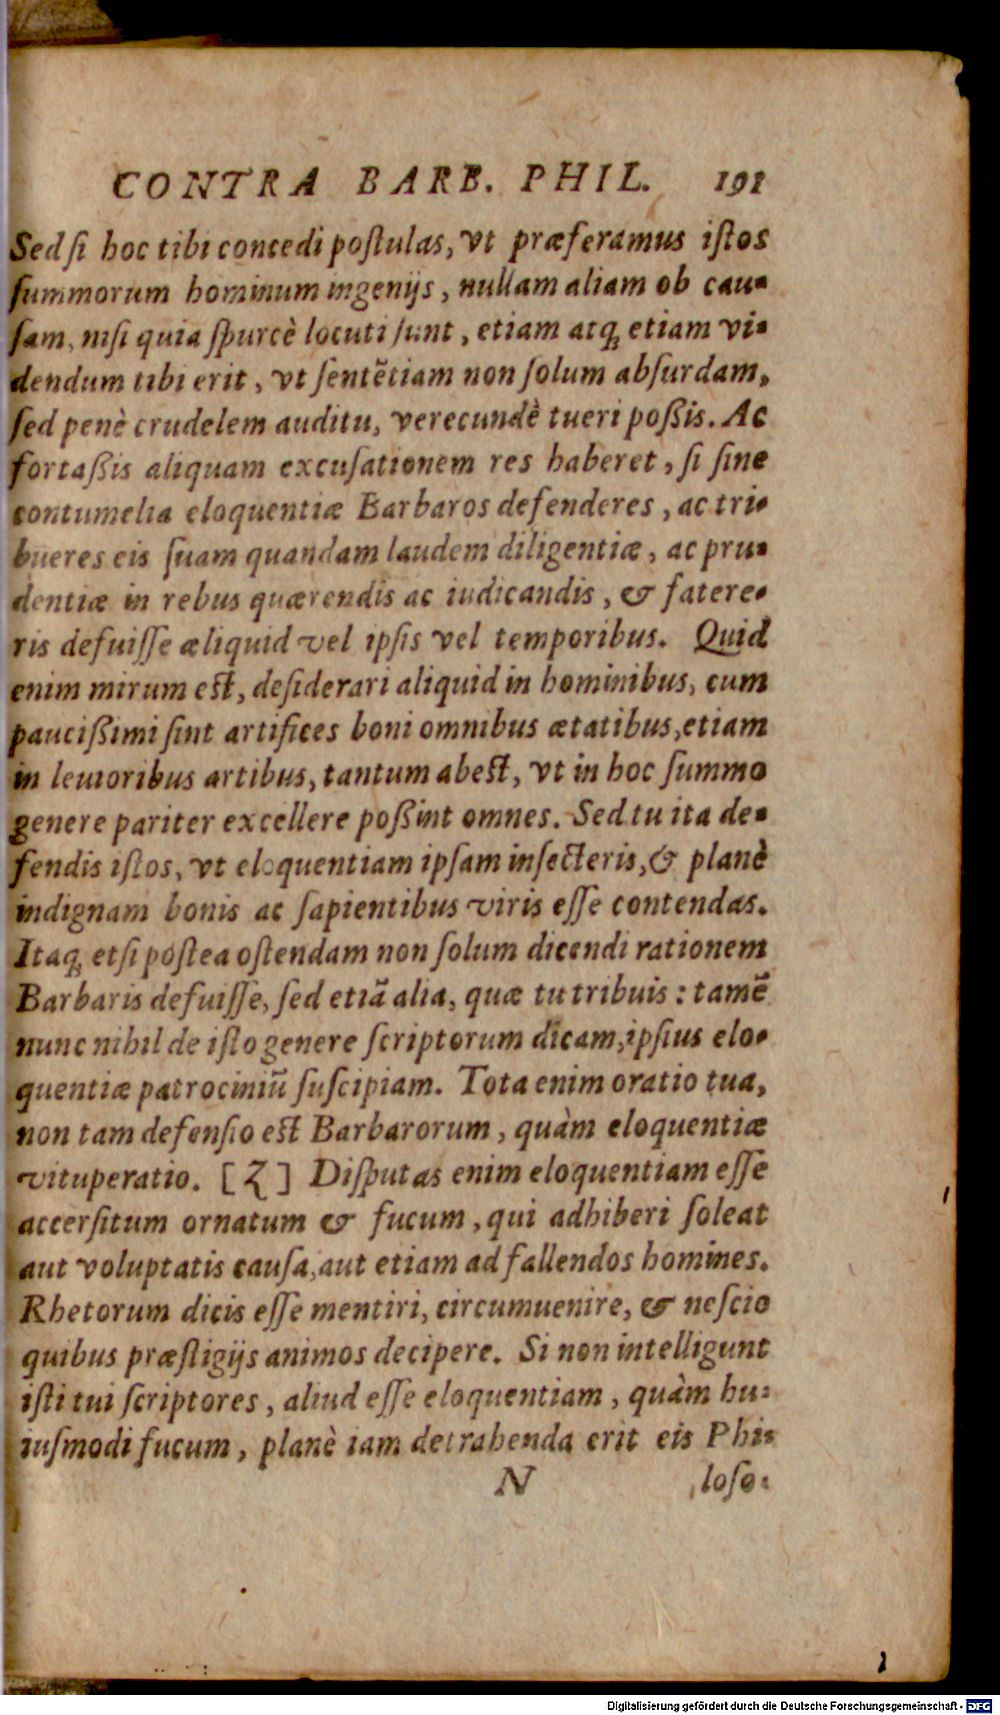 CONTRA BARB. PHIL. 191
Sed ſi hoc tibi concedi poſtulas, vt præferamus iſtos
ſummorum hominum ingenijs, nullam aliam ob cau-
ſam, niſi quia ſpurcè locuti ſunt, etiam atq; etiam vi-
dendum tibi erit, vt ſentẽtiam non ſolum abſurdam,
ſed penè crudelem auditu, verecundè tueri poßis. Ac
fortaßis aliquam excuſationem res haberet, ſi ſine
contumelia eloquentiæ Barbaros defenderes, ac tri-
bueres eis ſuam quandam laudem diligentiæ, ac pru-
dentiæ in rebus quærendis ac iudicandis, & fatere-
ris defuiſſe æliquid vel ipſis vel temporibus. Quid
enim mirum est, deſiderari aliquid in hominibus, cum
paucißimi ſint artifices boni omnibus ætatibus, etiam
in leuioribus artibus, tantum abest, vt in hoc ſummo
genere pariter excellere poßint omnes. Sed tu ita de-
fendis iſtos, vt eloquentiam ipſam inſecteris, & planè
indignam bonis ac ſapientibus viris eſſe contendas.
Itaq; etſi poſtea oſtendam non ſolum dicendi rationem
Barbaris defuiſſe, ſed etiã alia, quæ tu tribuis: tamẽ
nunc nihil de iſto genere ſcriptorum dicam, ipſius elo-
quentiæ patrociniũ ſuſcipiam. Tota enim oratio tua,
non tam defenſio est Barbarorum, quàm eloquentiæ
vituperatio. [ζ] Diſputas enim eloquentiam eſſe
accerſitum ornatum & fucum, qui adhiberi ſoleat
aut voluptatis cauſa, aut etiam ad fallendos homines.
Rhetorum dicis eſſe mentiri, circumuenire, & neſcio
quibus præſtigijs animos decipere. Si non intelligunt
iſti tui ſcriptores, aliud eſſe eloquentiam, quàm hu-
iuſmodi fucum, planè iam detrahenda erit eis Phi-
N loſo-
Digitalisierung gefördert durch die Deutsche Forschungsgemeinschaft - DFG